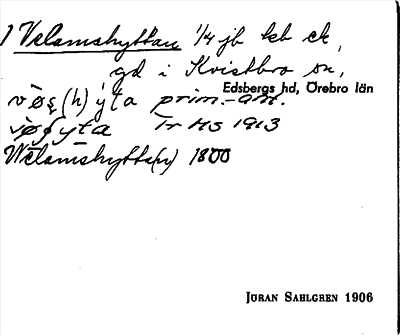 1 Velamshyttan 1/4 jb kb ck,
gd i Kvistbro sn,
Edsbergs hd, Örebro län
prim.-ant.
Tr HS 1913
Welamshytta(n) 1800
JÖRAN SAHLGREN 1906